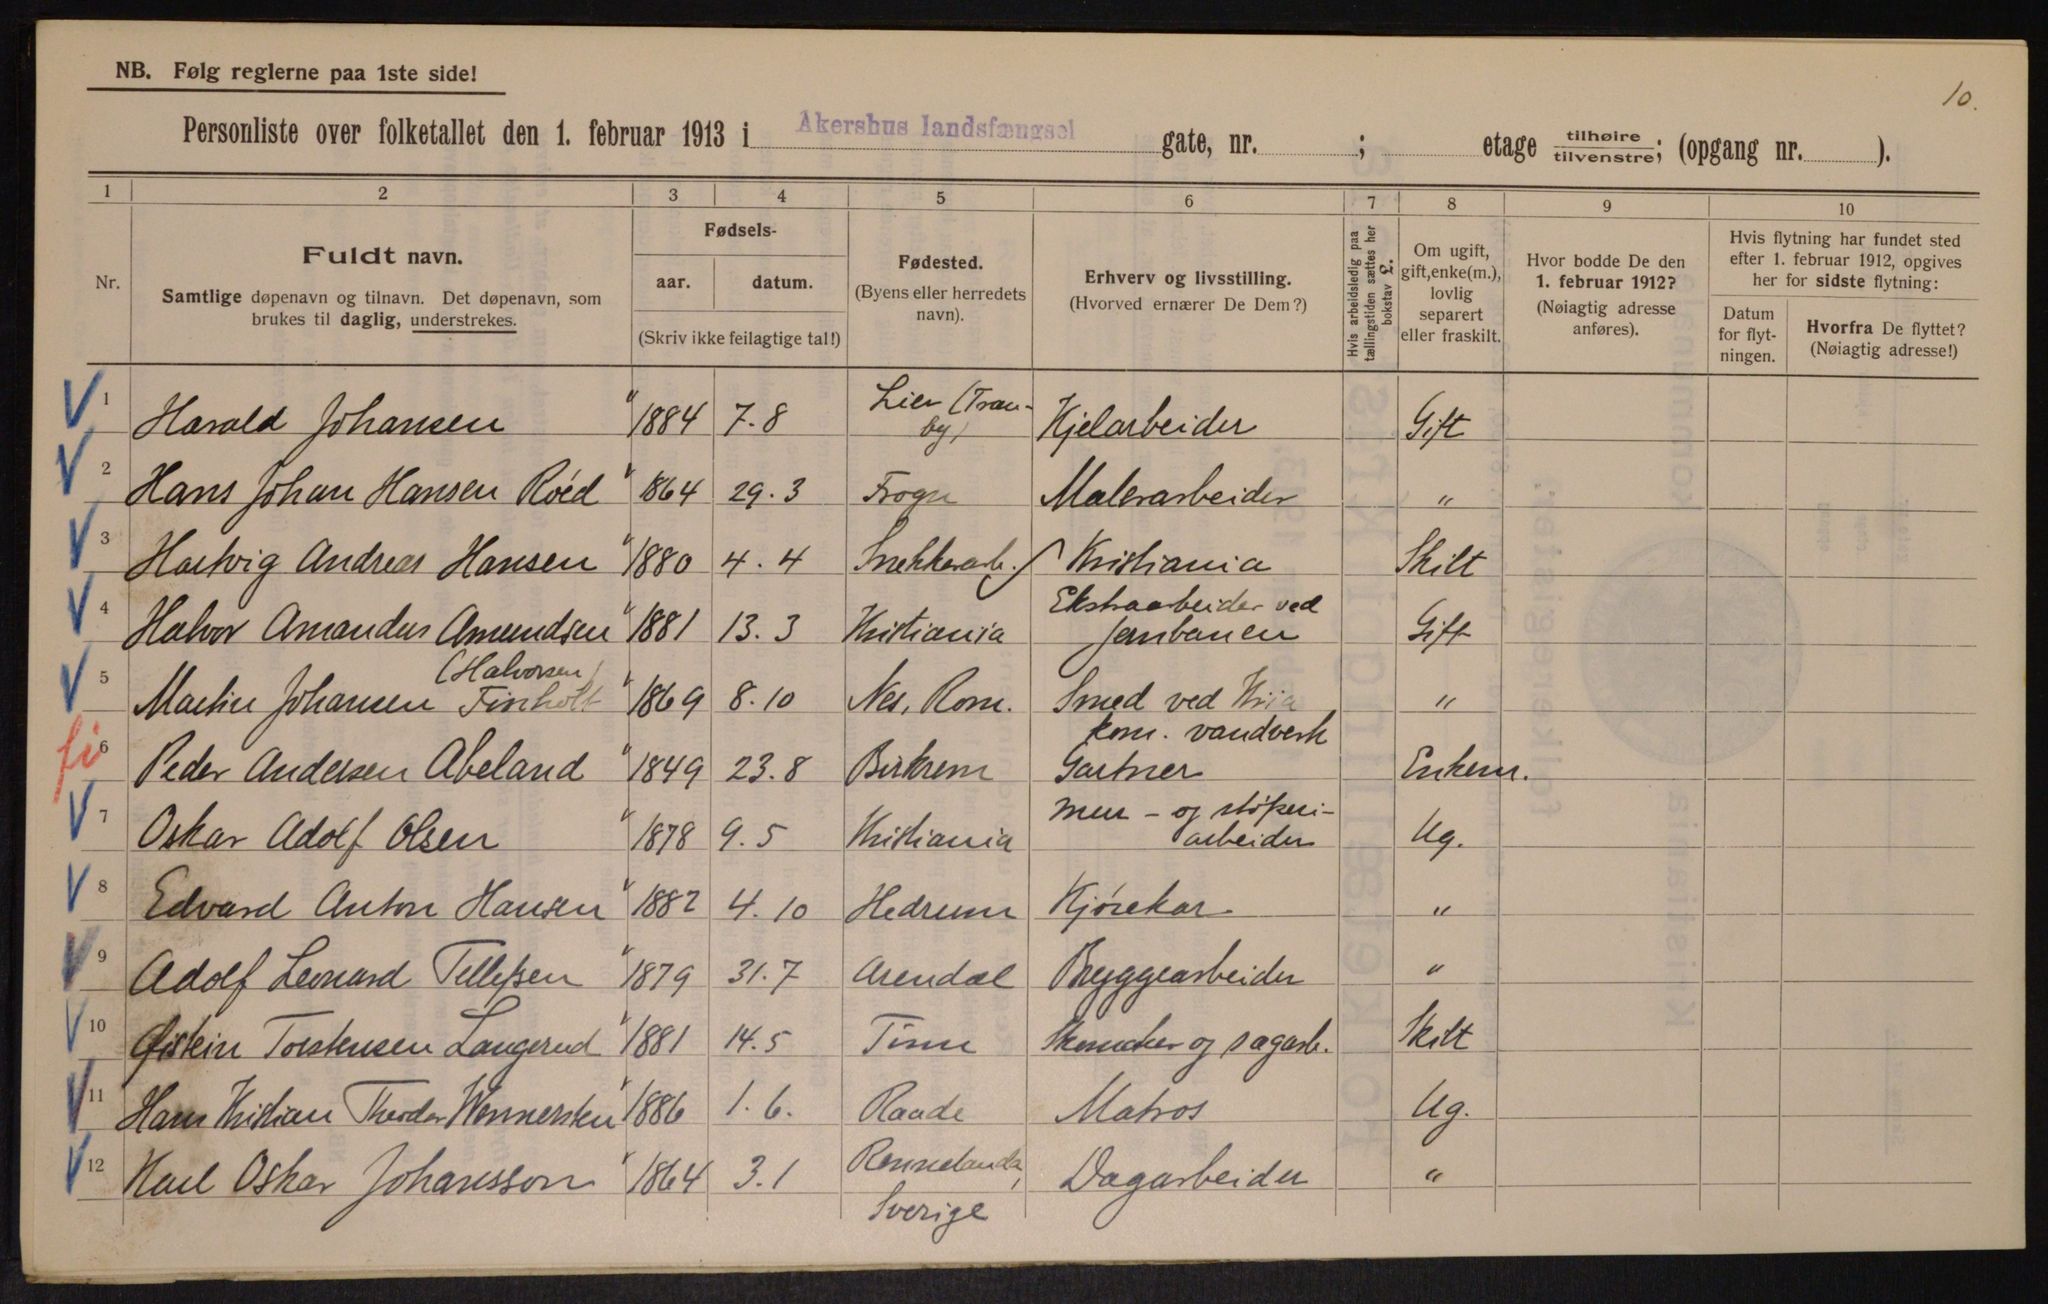 10.
NB. Følg reglerne paa 1ste side!
Personliste over folketallet den 1. februar 1913 i Akershus landsfængsel gate, nr. ; etage tilhøire/tilvenstre; (opgang nr. ).
1 2 3 4 5 6 7 8 9 10
Nr.
Fuldt navn.
Samtlige døpenavn og tilnavn. Det døpenavn, som
brukes til daglig, understrekes.
Fødsels-
aar. datum.
(Skriv ikke feilagtige tal!)
Fødested.
(Byens eller herredets
navn).
Erhverv og livsstilling.
(Hvorved ernærer De Dem?)
Hvis arbeidsledig paa
tællingstiden sættes her
bokstav £.
Om ugift,
gift, enke(m.),
lovlig
separert
eller fraskilt.
Hvor bodde De den
1. februar 1912?
(Nøiagtig adresse
anføres).
Hvis flytning har fundet sted
efter 1. februar 1912, opgives
her for sidste flytning:
Datum
for flyt-
ningen.
Hvorfra De flyttet?
(Nøiagtig adresse!)
1 Harald Johansen 1884 7.8 Lier (Tran-
by) Kjelarbeider Gift
2 Hans Johan Hansen Röed 1864 29.3 Frogn Malerarbeider "
3 Hartvig Andreas Hansen 1880 4.4 Snekkerarb. Kristiania Skilt
4 Halvor Amandus Amundsen 1881 13.3 Kristiania Ekstraarbeider ved
jernbanen Gift
5 Martin Johansen (Halvorsen)
Finholt 1869 8.10 Nes, Rom. Smed ved Kria
kom. vandverk "
6 Peder Andersen Abeland 1849 23.8 Birkrem Gartner Enkem.
7 Oskar Adolf Olsen 1878 9.5 Kristiania Mur- og støperi-
arbeider Ug.
8 Edvard Anton Hansen 1882 4.10 Hedrum Kjørekar "
9 Adolf Leonard Tellefsen 1879 31.7 Arendal Bryggearbeider "
10 Øistein Torstensen Langerud 1881 14.5 Tinn Skomaker og sagarb. Skilt
11 Hans Kristian Theodor Wennersten 1886 1.6. Raade Matros Ug.
12 Karl Oskar Johansson 1864 3.1
Sverige Dagarbeider "